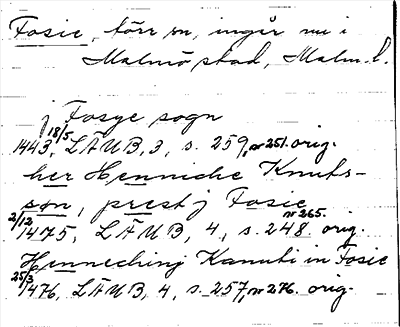 Fosie, förr sn, ingår nu i
Malmö stad, Malm. l.
j Fosye sogn
1443 18/5, LÄUB, 3, s. 259, nr 251. orig.
her Henniche Knuts-
søn, prest j Fosie
2/12 1475, LÄUB, 4, s. 248. nr 265. orig.
Hennechinj Kanuti in Fosie
25/3 1476, LÄUB, 4, s. 257, nr 276. orig.